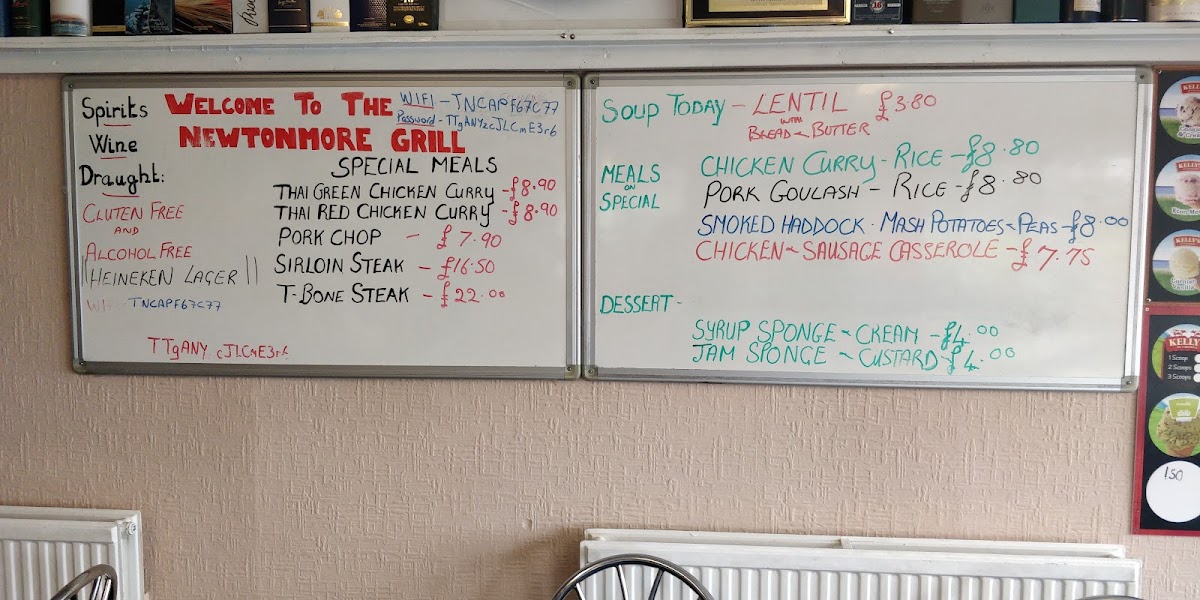 Spirits
Wine
Draught:
CLUTEN FREE
AND
ALCOHOL FREE
HEINEKEN LAGER
WIFI TNCAPF67C77
TTgANY cJLCmE3r6
WELCOME TO THE
NEWTONMORE GRILL
WIFI - TNCAPF67C77
Password - TTgANYzcJLCmE3r6
SPECIAL MEALS
THAI GREEN CHICKEN CURRY - £8.90
THAI RED CHICKEN CURRY - £8.90
PORK CHOP - £7.90
SIRLOIN STEAK - £16.50
T-BONE STEAK - £22.00
SOUP TODAY - LENTIL £3.80
WITH
BREAD & BUTTER
MEALS
ON
SPECIAL
CHICKEN CURRY - RICE - £8.80
PORK GOULASH - RICE - £8.80
SMOKED HADDOCK · MASH POTATOES & PEAS - £8.00
CHICKEN & SAUSAGE CASSEROLE - £7.75
DESSERT -
SYRUP SPONGE & CREAM - £4.00
JAM SPONGE & CUSTARD - £4.00
KELLY'S
1 Scoop
2 Scoops
3 Scoops
1.50